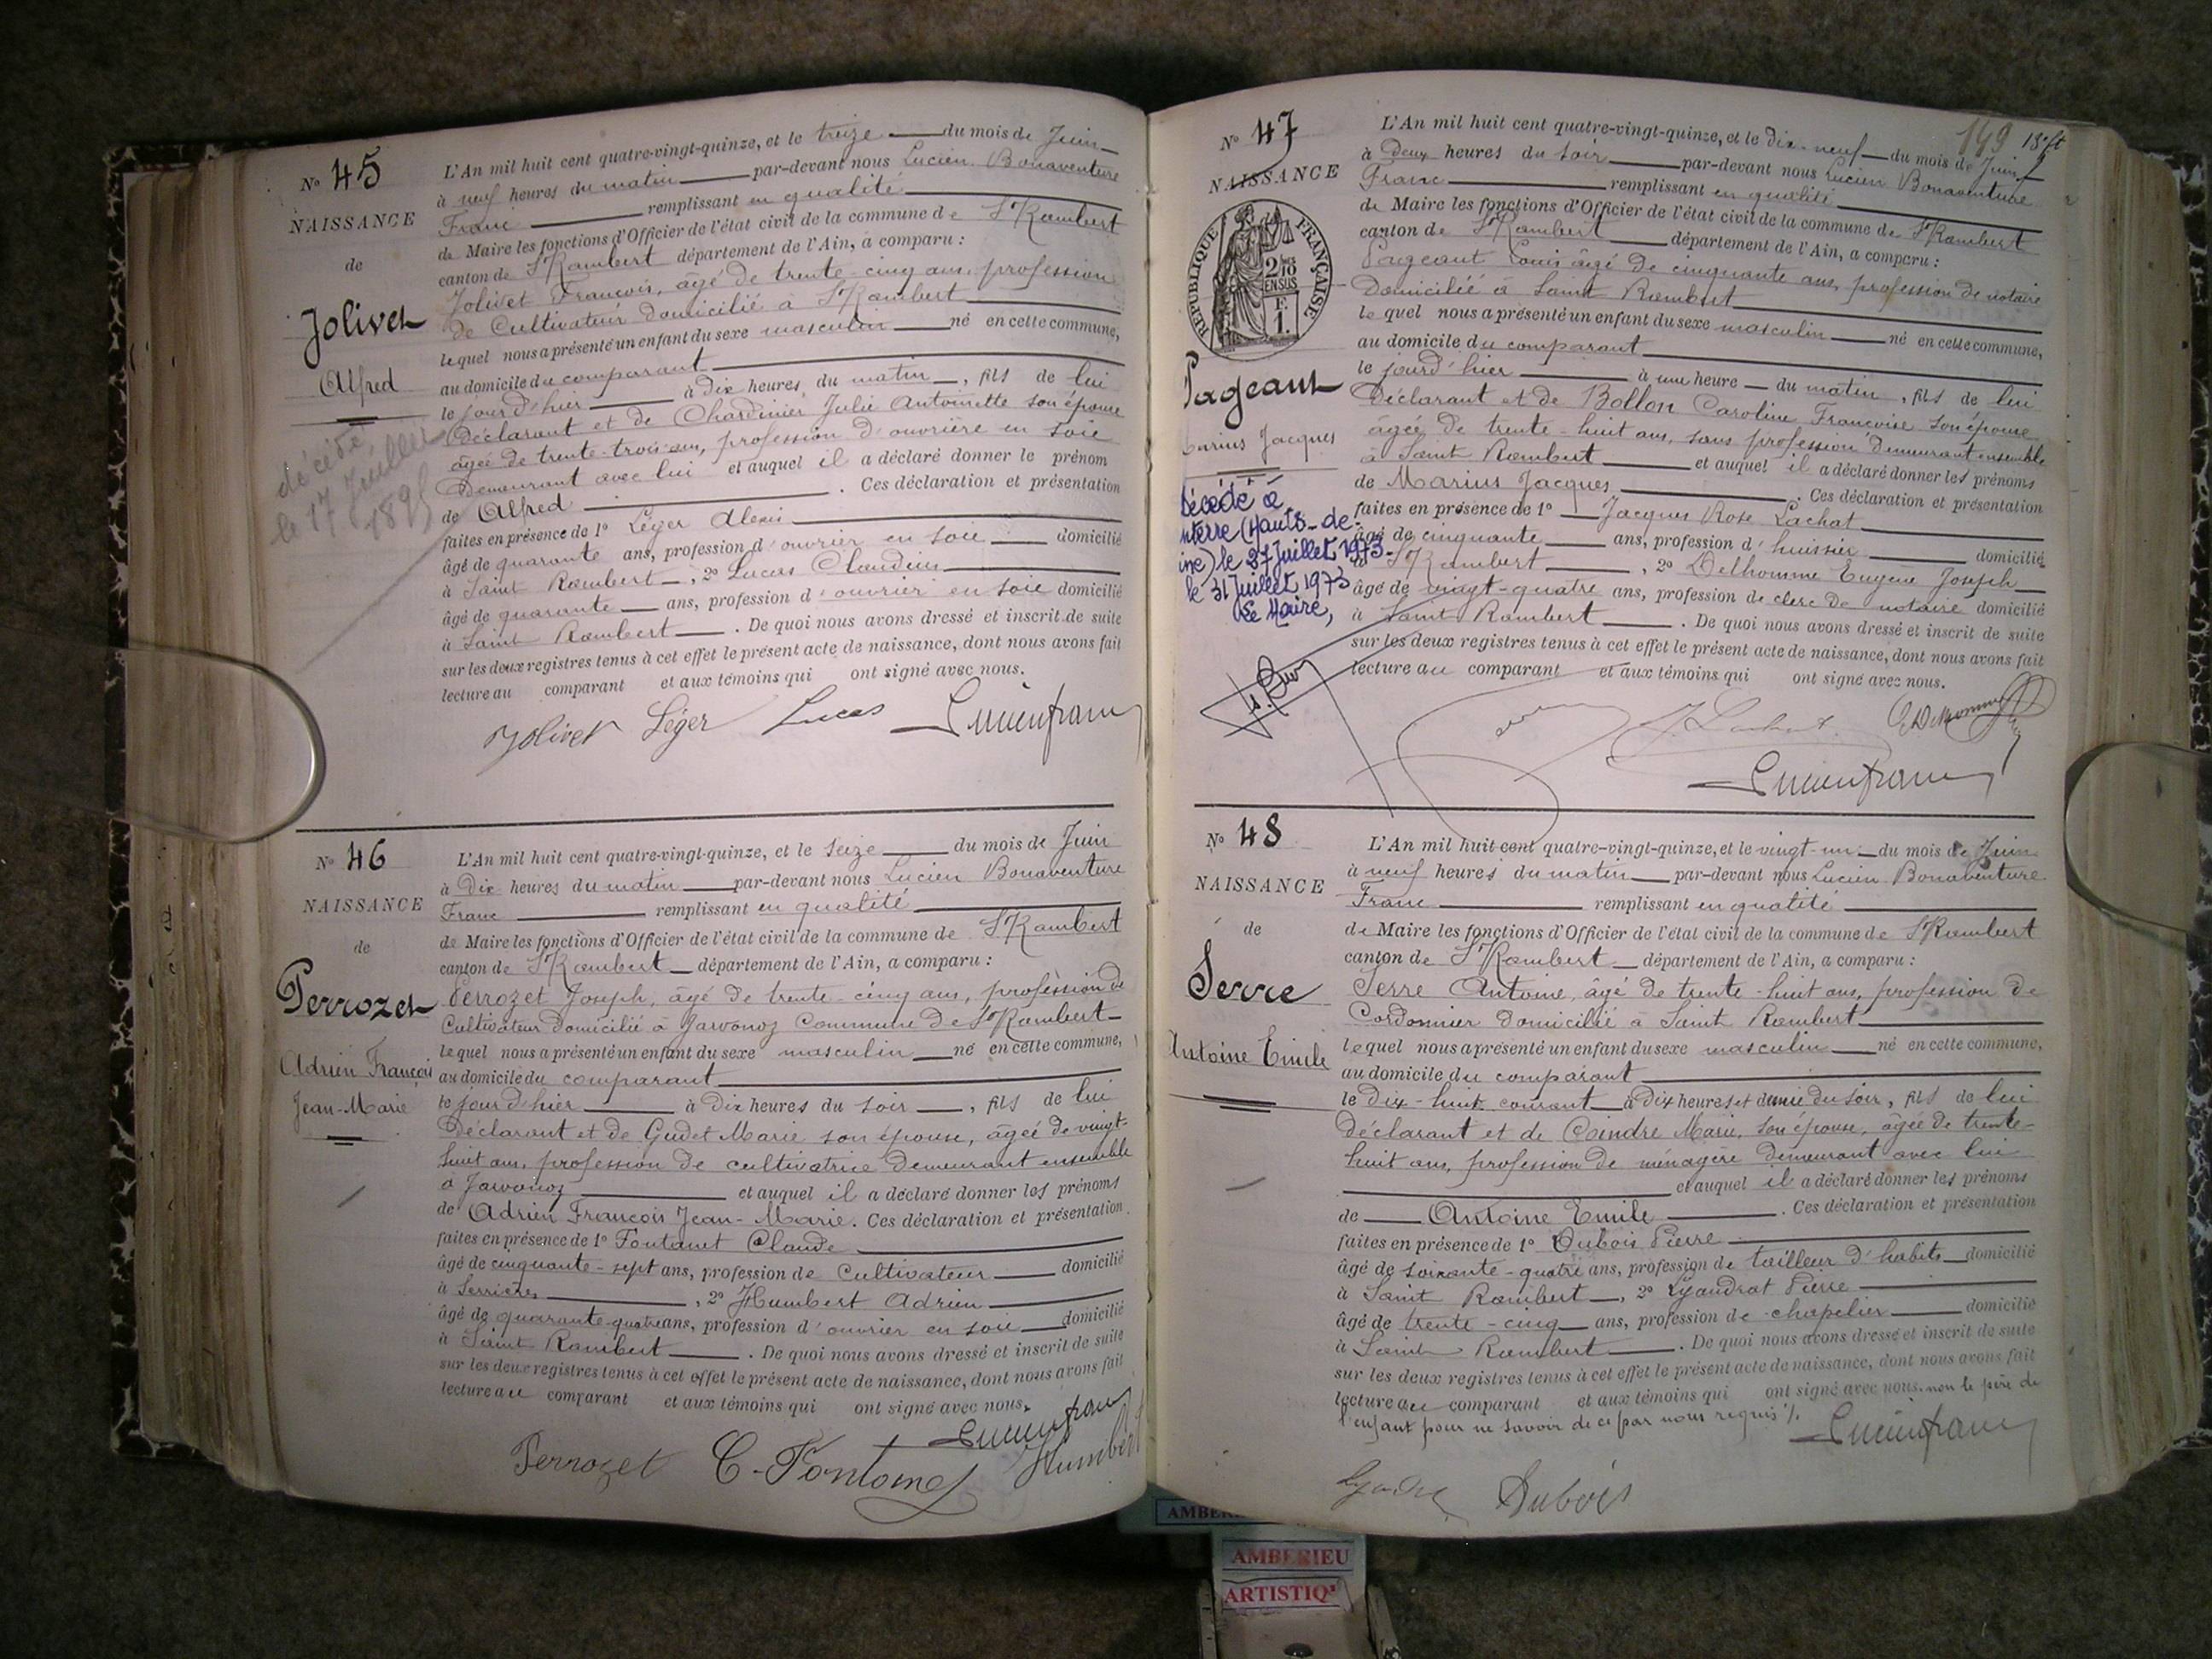 N° 45
NAISSANCE
de
Jolivet
Alfred
décédé
le 17 Juillet
1895
L'An mil huit cent quatre-vingt-quinze, et le treize du mois de Juin
à neuf heures du matin par-devant nous Lucien Bonaventure
Franc remplissant en qualité
de Maire les fonctions d'Officier de l'état civil de la commune de St Rambert
canton de St Rambert département de l'Ain, a comparu :
Jolivet François, âgé de trente-cinq ans, profession
de Cultivateur domicilié à St Rambert
lequel nous a présenté un enfant du sexe masculin né en cette commune,
au domicile du comparant
le jourd'hier à Dix heures du matin, fils de lui
Déclarant et de Chardinier Julie Antoinette son épouse
âgée de trente-trois ans, profession d'ouvrière en soie
Demeurant avec lui et auquel il a déclaré donner le prénom
de Alfred . Ces déclaration et présentation
faites en présence de 1° Léger Alexis
âgé de quarante ans, profession d'ouvrier en soie domicilié
à Saint Rambert , 2° Lucas Claudius
âgé de quarante ans, profession d'ouvrier en soie domicilié
à Saint Rambert . De quoi nous avons dressé et inscrit de suite
sur les deux registres tenus à cet effet le présent acte de naissance, dont nous avons fait
lecture au comparant et aux témoins qui ont signé avec nous.
Jolivet Léger Lucas Lucienfranc
N° 46
NAISSANCE
de
Perrozet
Adrien François
Jean-Marie
L'An mil huit cent quatre-vingt-quinze, et le seize du mois de Juin
à Dix heures du matin par-devant nous Lucien Bonaventure
Franc remplissant en qualité
de Maire les fonctions d'Officier de l'état civil de la commune de St Rambert
canton de St Rambert département de l'Ain, a comparu :
Perrozet Joseph, âgé de trente-cinq ans, profession de
Cultivateur Domicilié à Javornoz Commune de St Rambert
lequel nous a présenté un enfant du sexe masculin né en cette commune,
au domicile du comparant
le jourd'hier à Dix heures du soir, fils de lui
Déclarant et de Gudet Marie son épouse, âgée de vingt-
huit ans, profession de cultivatrice demeurant ensemble
à Javornoz et auquel il a déclaré donner les prénoms
de Adrien François Jean-Marie. Ces déclaration et présentation
faites en présence de 1° Fontanet Claude
âgé de cinquante-sept ans, profession de Cultivateur domicilié
à Serrières , 2° Humbert Adrien
âgé de quarante-quatre ans, profession d'ouvrier en soie domicilié
à Saint Rambert . De quoi nous avons dressé et inscrit de suite
sur les deux registres tenus à cet effet le présent acte de naissance, dont nous avons fait
lecture au comparant et aux témoins qui ont signé avec nous.
Lucienfranc
Perrozet C. Fontanet Humbert
149
N° 47
NAISSANCE
RÉPUBLIQUE FRANÇAISE
2/10 EN SUS
1 F.
Pageant
Marius Jacques
Décédé à
nterre (Hauts-de-
ine) le 27 Juillet 1973.
le 31 Juillet 1973
Le Maire,
L'An mil huit cent quatre-vingt-quinze, et le Dix-neuf du mois de Juin
à Deux heures du soir par-devant nous Lucien Bonaventure
Franc remplissant en qualité
de Maire les fonctions d'Officier de l'état civil de la commune de St Rambert
canton de St Rambert département de l'Ain, a comparu :
Pageant Louis âgé de cinquante ans, profession de notaire
Domicilié à Saint Rambert
lequel nous a présenté un enfant du sexe masculin né en cette commune,
au domicile du comparant
le jourd'hier à une heure du matin, fils de lui
Déclarant et de Bollon Caroline Françoise son épouse
âgée de trente-huit ans, sans profession demeurant ensemble
à Saint Rambert et auquel il a déclaré donner les prénoms
de Marius Jacques . Ces déclaration et présentation
faites en présence de 1° Jacques Rose Lachat
âgé de cinquante ans, profession d'huissier domicilié
à St Rambert , 2° Delhomme Eugène Joseph
âgé de vingt-quatre ans, profession de clerc de notaire domicilié
à Saint Rambert . De quoi nous avons dressé et inscrit de suite
sur les deux registres tenus à cet effet le présent acte de naissance, dont nous avons fait
lecture au comparant et aux témoins qui ont signé avec nous.
J. Lachat E. Delhomme
Lucienfranc
N° 48
NAISSANCE
de
Serre
Antoine Emile
L'An mil huit cent quatre-vingt-quinze, et le vingt-un du mois de Juin
à neuf heures du matin par-devant nous Lucien Bonaventure
Franc remplissant en qualité
de Maire les fonctions d'Officier de l'état civil de la commune de St Rambert
canton de St Rambert département de l'Ain, a comparu :
Serre Antoine, âgé de trente-huit ans, profession de
Cordonnier domicilié à Saint Rambert
lequel nous a présenté un enfant du sexe masculin né en cette commune,
au domicile du comparant
le Dix-huit courant à Dix heures et demie du soir, fils de lui
déclarant et de Coindre Marie, son épouse, âgée de trente-
huit ans, profession de ménagère demeurant avec lui
et auquel il a déclaré donner les prénoms
de Antoine Emile . Ces déclaration et présentation
faites en présence de 1° Dubois Pierre
âgé de soixante-quatre ans, profession de tailleur d'habits domicilié
à Saint Rambert , 2° Lyaudrat Pierre
âgé de trente-cinq ans, profession de chapelier domicilié
à Saint Rambert . De quoi nous avons dressé et inscrit de suite
sur les deux registres tenus à cet effet le présent acte de naissance, dont nous avons fait
lecture au comparant et aux témoins qui ont signé avec nous. non le père de
l'enfant pour ne savoir de ce par nous requis /.
Lucienfranc
Dubois
AMBERIEU
ARTISTIQ